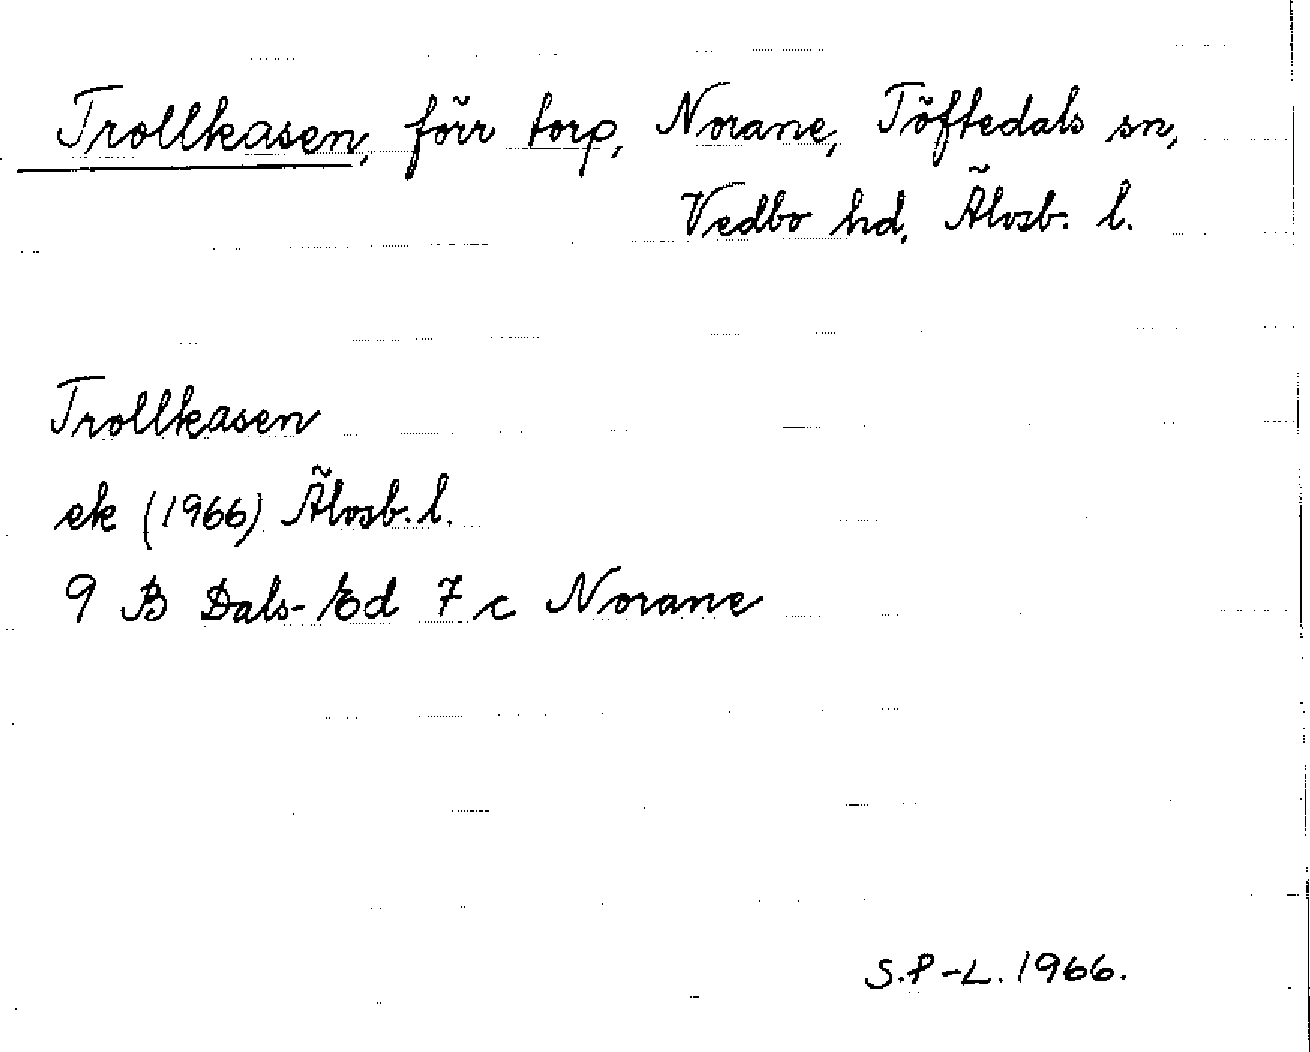 Trollkasen, förr torp, Norane, Töftedals sn,
Vedbo hd, Älvsb. l.
Trollkasen
ek (1966) Älvsb. l.
9 B Dals-Ed 7 c Norane
S.P-L. 1966.